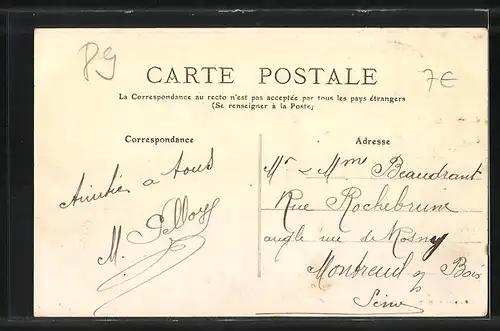 P9
7€
CARTE POSTALE
La Correspondance au recto n'est pas acceptée par tous les pays étrangers
(Se renseigner à la Poste)
Correspondance
Amitiés a tous
M.
Adresse
Mr & Mme Beaudrant
Rue Rochebrune
angle rue de Rosny
Montreuil s/ Bois
Seine